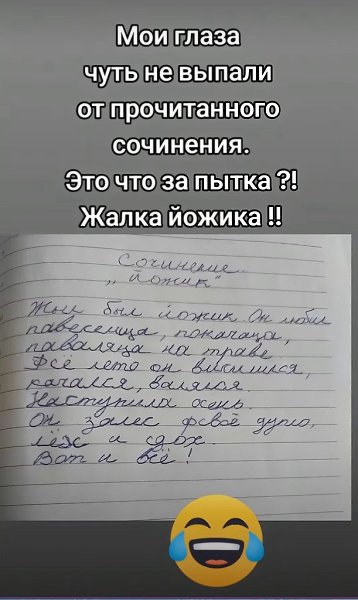 Мои глаза
чуть не выпали
от прочитанного
сочинения.
Это что за пытка ?!
Жалка йожика !!
Сочинение.
„Йожик"
Жыл был йожик. Он любил
павесеица, покачаца,
паваляца на траве.
Фсё лето он висился,
качался, валялся.
Наступила осень.
Он залес фсвоё дупло,
лёх и сдох.
Вот и всё!